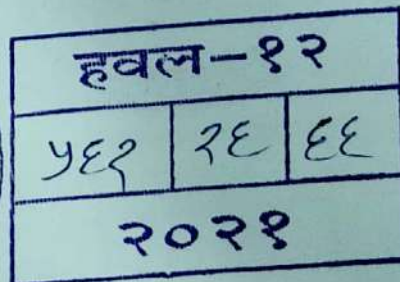 हवल-१२
५६२ २६ ६६
२०२१